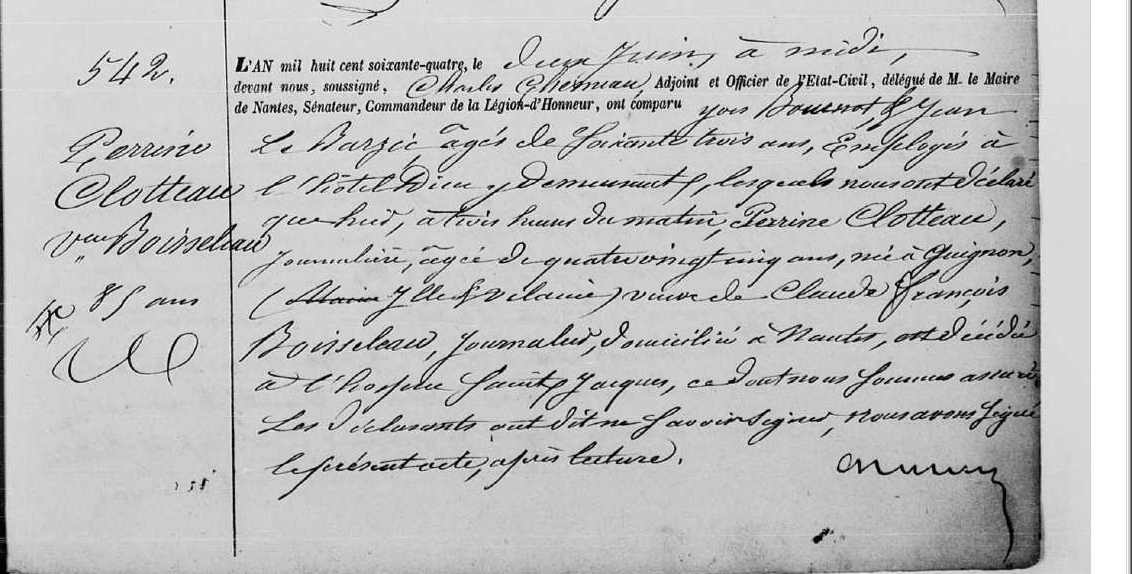 542.
Perrine
Clotteau
vve Boisseleau
85 ans
L'AN mil huit cent soixante-quatre, le deux Juin, à midi,
devant nous, soussigné, Charles Cherneau, Adjoint et Officier de l'Etat-Civil, délégué de M. le Maire
de Nantes, Sénateur, Commandeur de la Légion-d'Honneur, ont comparu yves Bournot, & Jean
Le Barzic, âgés de soixante trois ans, Employés à
l'hôtel Dieu y demeurant, lesquels nous ont déclaré
que hier, à trois heures du matin, Perrine Clotteau,
Journalière, âgée de quatre vingt cinq ans, née à Guignon,
(Ille & Vilaine) veuve de Claude François
Boisseleau, Journalier, domicilié à Nantes, est décédée
à l'hospice Saint Jacques, ce dont nous sommes assuré.
Les déclarants ont dit ne savoir signer, nous avons signé
le présent acte, après lecture.